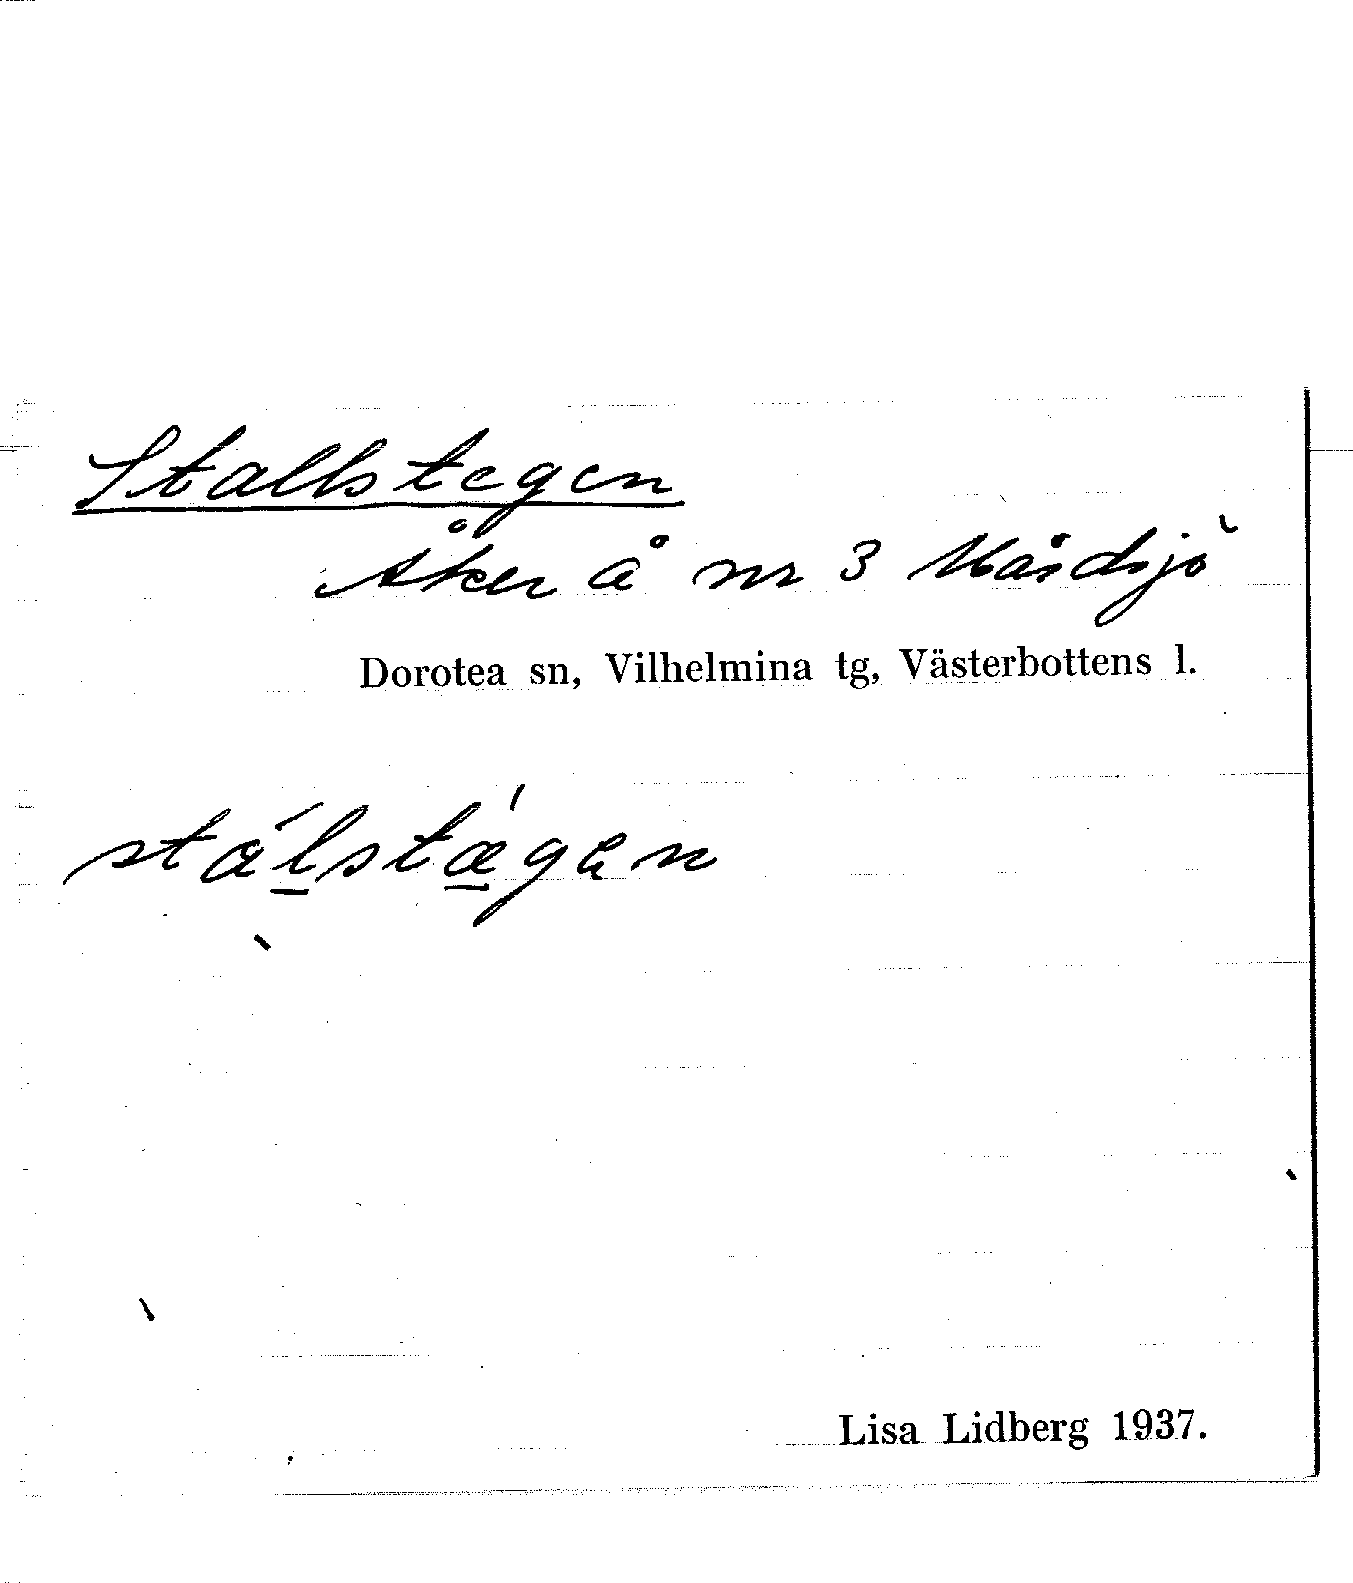 Stallstegen
Åker å nr 3 Måsdsjö
Dorotea sn, Vilhelmina tg, Västerbottens l.
stálstǽgen
Lisa Lidberg 1937.